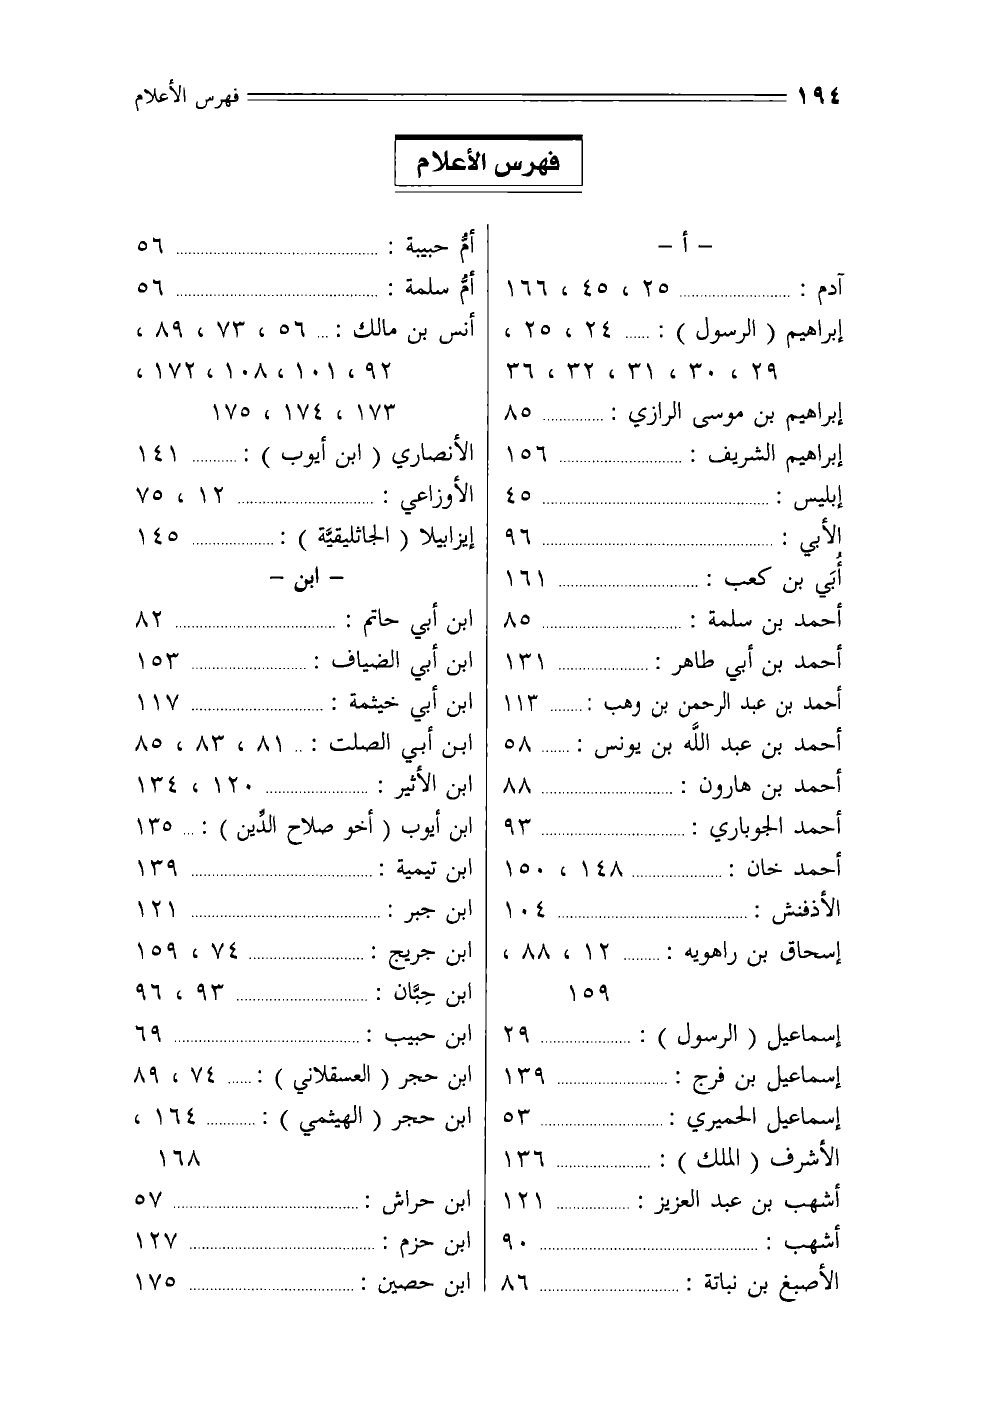 ١٩٤ فهرس الأعلام
فهرس الأعلام
– أ –
آدم : ٢٥ ، ٤٥ ، ١٦٦
إبراهيم ( الرسول ) : ٢٤ ، ٢٥ ،
٢٩ ، ٣٠ ، ٣١ ، ٣٢ ، ٣٦
إبراهيم بن موسى الرازي : ٨٥
إبراهيم الشريف : ١٥٦
إبليس : ٤٥
الأبي : ٩٦
أُبَي بن كعب : ١٦١
أحمد بن سلمة : ٨٥
أحمد بن أبي طاهر : ١٣١
أحمد بن عبد الرحمن بن وهب : ١١٣
أحمد بن عبد اللَّه بن يونس : ٥٨
أحمد بن هارون : ٨٨
أحمد الجوباري : ٩٣
أحمد خان : ١٤٨ ، ١٥٠
الأذفنش : ١٠٤
إسحاق بن راهويه : ١٢ ، ٨٨ ،
١٥٩
إسماعيل ( الرسول ) : ٢٩
إسماعيل بن فرج : ١٣٩
إسماعيل الحميري : ٥٣
الأشرف ( الملك ) : ١٣٦
أشهب بن عبد العزيز : ١٢١
أشهب : ٩٠
الأصبغ بن نباتة : ٨٦
أمُّ حبيبة : ٥٦
أمُّ سلمة : ٥٦
أنس بن مالك : ٥٦ ، ٧٣ ، ٨٩ ،
٩٢ ، ١٠١ ، ١٠٨ ، ١٧٢ ،
١٧٣ ، ١٧٤ ، ١٧٥
الأنصاري ( ابن أيوب ) : ١٤١
الأوزاعي : ١٢ ، ٧٥
إيزابيلا ( الجاثليقيَّة ) : ١٤٥
– ابن –
ابن أبي حاتم : ٨٢
ابن أبي الضياف : ١٥٣
ابن أبي خيثمة : ١١٧
ابن أبي الصلت : ٨١ ، ٨٣ ، ٨٥
ابن الأثير : ١٢٠ ، ١٣٤
ابن أيوب ( أخو صلاح الدِّين ) : ١٣٥
ابن تيمية : ١٣٩
ابن جبر : ١٢١
ابن جريج : ٧٤ ، ١٥٩
ابن حِبَّان : ٩٣ ، ٩٦
ابن حبيب : ٦٩
ابن حجر ( العسقلاني ) : ٧٤ ، ٨٩
ابن حجر ( الهيثمي ) : ١٦٤ ،
١٦٨
ابن حراش : ٥٧
ابن حزم : ١٢٧
ابن حصين : ١٧٥